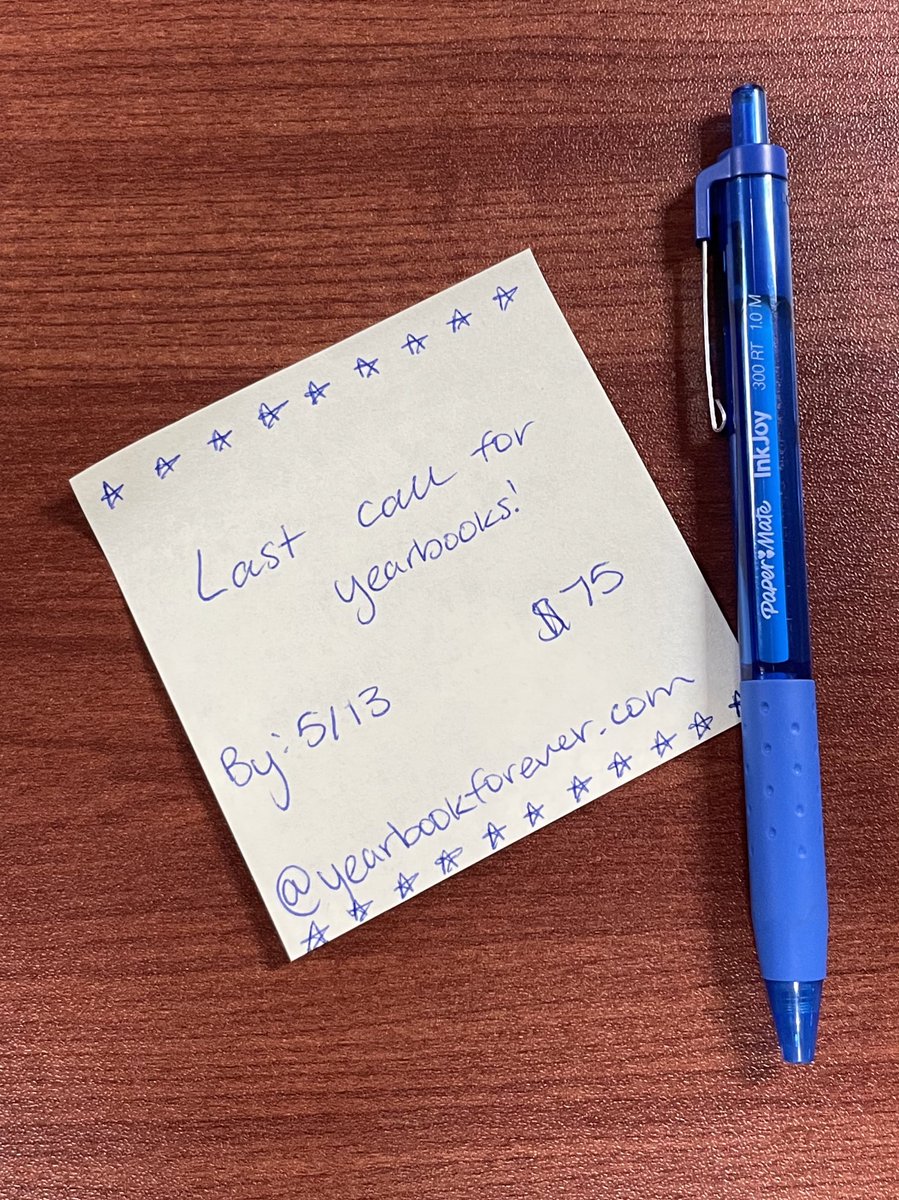 Last call for
yearbooks!
$75
By: 5/13
@yearbookforever.com
Paper Mate InkJoy 300 RT 1.0 M